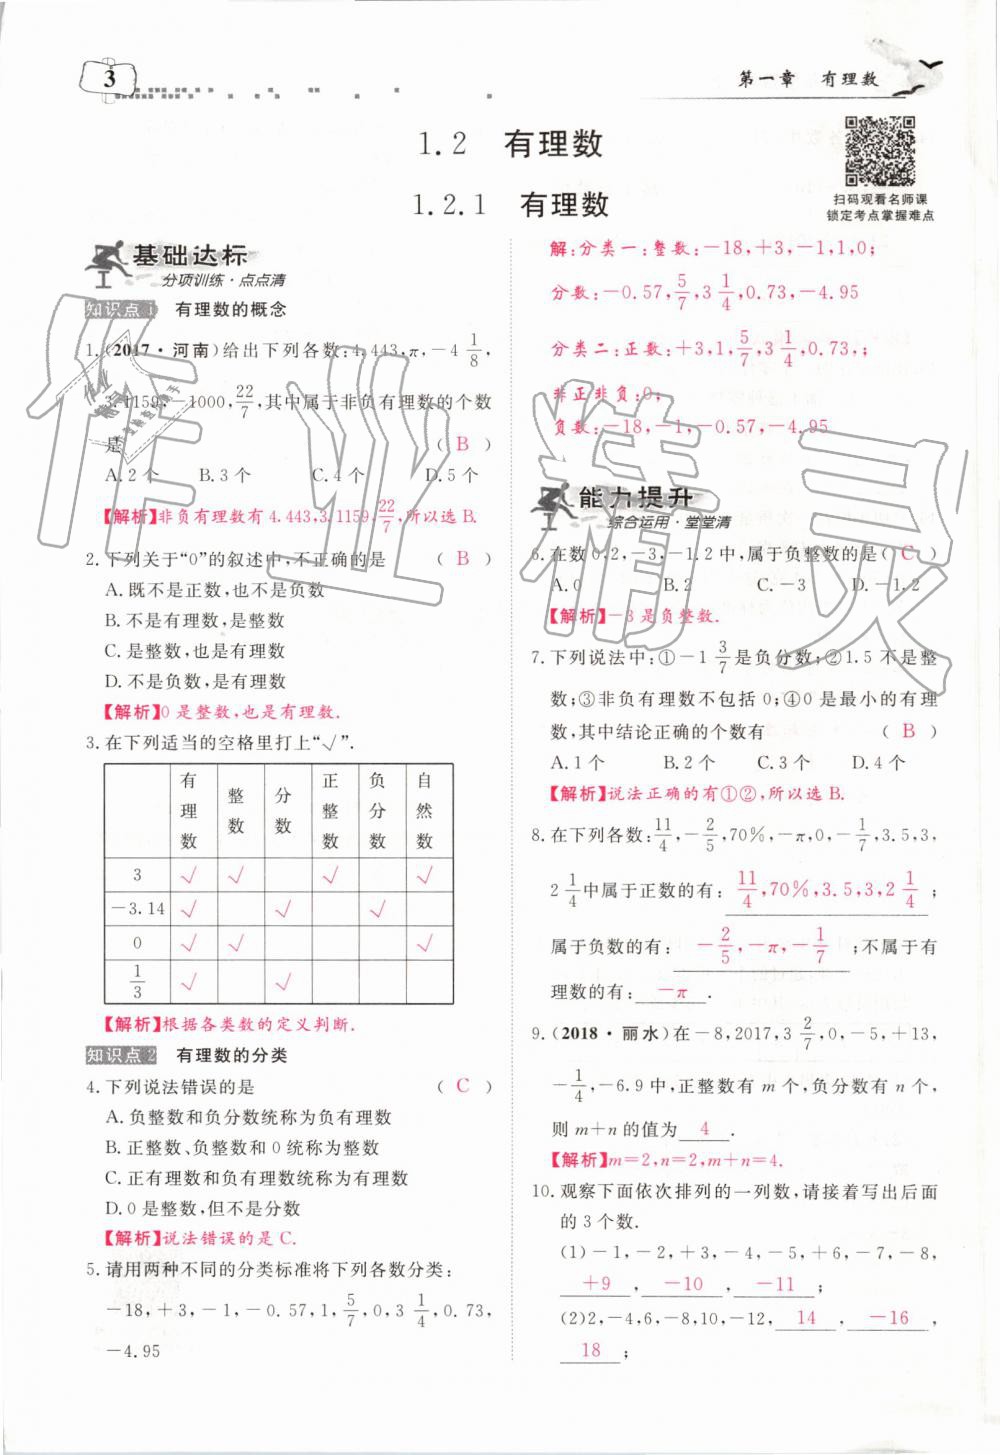 3
第一章 有理数
1.2 有理数
1.2.1 有理数
扫码观看名师课
锁定考点掌握难点
基础达标
分项训练·点点清
知识点1 有理数的概念
1.(2017·河南)给出下列各数:4.443,π,-4 1/8,
3.1159,-1000,22/7,其中属于非负有理数的个数
是 ( B )
A.2个 B.3个 C.4个 D.5个
【解析】非负有理数有4.443,3.1159,22/7,所以选B.
2.下列关于“0”的叙述中,不正确的是 ( B )
A.既不是正数,也不是负数
B.不是有理数,是整数
C.是整数,也是有理数
D.不是负数,是有理数
【解析】0是整数,也是有理数.
3.在下列适当的空格里打上“√”.
有理数 整数 分数 正整数 负分数 自然数
3 √ √ √ √
-3.14 √ √ √
0 √ √ √
1/3 √ √
【解析】根据各类数的定义判断.
知识点2 有理数的分类
4.下列说法错误的是 ( C )
A.负整数和负分数统称为负有理数
B.正整数、负整数和0统称为整数
C.正有理数和负有理数统称为有理数
D.0是整数,但不是分数
【解析】说法错误的是C.
5.请用两种不同的分类标准将下列各数分类:
-18,+3,-1,-0.57,1,5/7,0,3 1/4,0.73,
-4.95
解:分类一:整数:-18,+3,-1,1,0;
分数:-0.57,5/7,3 1/4,0.73,-4.95
分类二:正数:+3,1,5/7,3 1/4,0.73,;
非正非负:0;
负数:-18,-1,-0.57,-4.95
能力提升
综合运用·堂堂清
6.在数0,2,-3,-1.2中,属于负整数的是( C )
A.0 B.2 C.-3 D.-1.2
【解析】-3是负整数.
7.下列说法中:①-1 3/7是负分数;②1.5不是整
数;③非负有理数不包括0;④0是最小的有理
数,其中结论正确的个数有 ( B )
A.1个 B.2个 C.3个 D.4个
【解析】说法正确的有①②,所以选B.
8.在下列各数:11/4,-2/5,70%,-π,0,-1/7,3.5,3,
2 1/4中属于正数的有: 11/4,70%,3.5,3,2 1/4 ;
属于负数的有: -2/5,-π,-1/7 ;不属于有
理数的有: -π .
9.(2018·丽水)在-8,2017,3 2/7,0,-5,+13,
-1/4,-6.9中,正整数有m个,负分数有n个,
则m+n的值为 4 .
【解析】m=2,n=2,m+n=4.
10.观察下面依次排列的一列数,请接着写出后面
的3个数.
(1)-1,-2,+3,-4,-5,+6,-7,-8,
+9 , -10 , -11 ;
(2)2,-4,6,-8,10,-12, 14 , -16 ,
18 ;
作业精灵